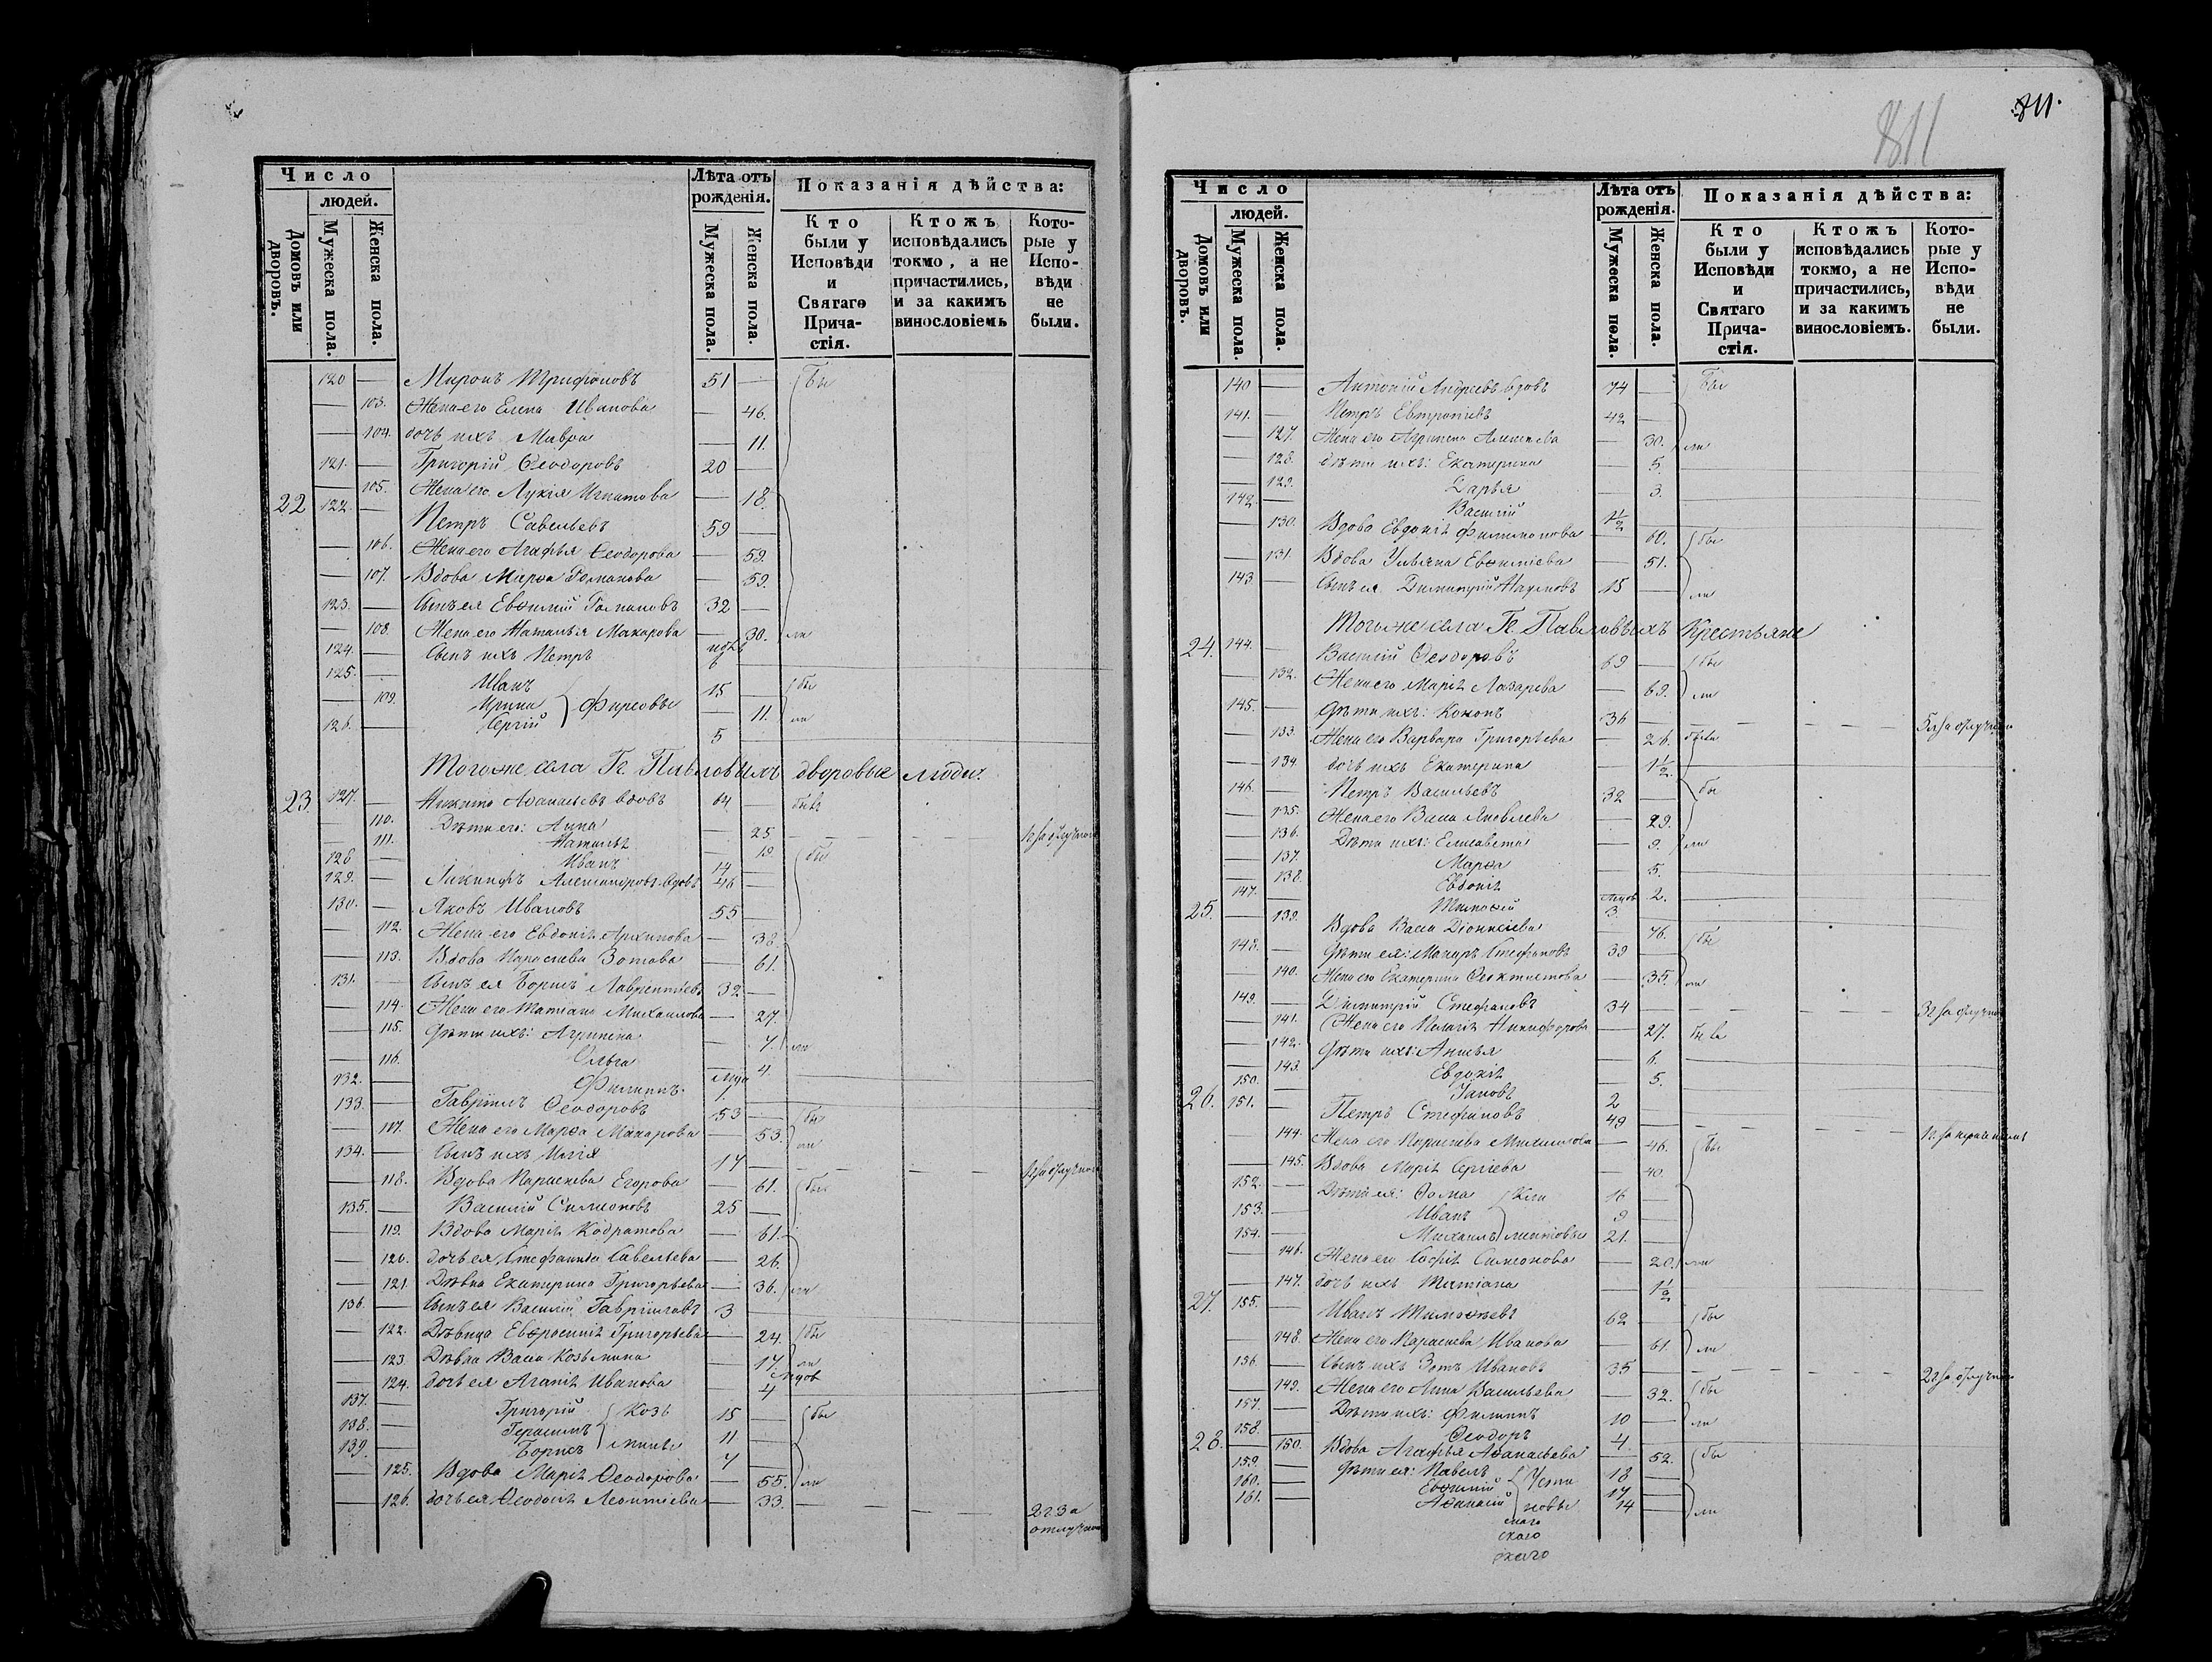 Число
людей.
Домовъ или дворовъ.
Мужеска пола.
Женска пола.
Лѣта отъ рожденія.
Мужеска пола.
Женска пола.
Показанія дѣйства:
Кто были у Исповѣди и Святаго Причастія.
Ктожъ исповѣдались токмо, а не причастились, и за какимъ винословіемъ
Которые у Исповѣди не были.
120 — Миронъ Трифоновъ 51 — бы
— 103. Жена его Елена Иванова — 46.
— 104. дочь ихъ Мавра — 11.
121. — Григорій Ѳеодоровъ 20 —
— 105. Жена его Лукія Игнатова — 18.
22 122. — Петръ Савельевъ 59 —
— 106. Жена его Агафья Ѳеодорова — 59.
— 107. Вдова Марѳа Романова — 59.
123. — Сынъ ея Евѳимій Романовъ 32 —
— 108. Жена его Наталья Макарова — 30. ли
124. — Сынъ ихъ Петръ 6
125. — Иванъ 15 — бы
— 109. Ирина Фирсовы — 11. ли
126. — Сергій 5
Тогоже села Г. Павловыхъ дворовые люди.
23 127. — Никита Аѳанасьевъ вдовъ 64 — бывъ
— 110. Дѣти его: Анна — 25
— 111. Наталья — 19. бы
128 — Иванъ 14
129. — Александровъ вдовъ 46 —
130. — Яковъ Ивановъ 55 —
— 112. Жена его Евдокія Архипова — 38.
— 113. Вдова Параскева Зотова — 61.
131. — Сынъ ея Борисъ Лаврентіевъ 32 —
— 114. Жена его Татіана Михаилова — 27.
— 115. Дѣти ихъ: Агрипена — 7. ли
— 116. Ольга — 4.
132. — Филиппъ 1.
133. — Гавріилъ Ѳеодоровъ 53 — бы
— 117. Жена его Марѳа Макарова — 53. ли
134. — Сынъ ихъ Илія 17 —
— 118. Вдова Параскева Егорова — 61. бы
135. — Василій Симеоновъ 25 —
— 119. Вдова Марія Кодратова — 61.
— 120. дочь ея Стефанида Савельева — 26.
— 121. Дѣвка Екатерина Григорьева — 36. ли
136. — Сынъ ея Василій Гавріиловъ 3
— 122. Дѣвица Евфросинія Григорьева — 24. бы
— 123. Дѣвка Васса Козьмина — 17. ли
— 124. дочь ея Агапія Иванова — 4
137. — Григорій Козь 15 — бы
138. — Герасимъ 11 —
139. — Борисъ мины 7
— 125. Вдова Марія Ѳеодорова — 55. ли
— 126. дочь ея Ѳеодосія Леонтіева — 33. 2 г за отлучкою
811
811.
Число
людей.
Домовъ или дворовъ.
Мужеска пола.
Женска пола.
Лѣта отъ рожденія.
Мужеска пола.
Женска пола.
Показанія дѣйства:
Кто были у Исповѣди и Святаго Причастія.
Ктожъ исповѣдались токмо, а не причастились, и за какимъ винословіемъ.
Которые у Исповѣди не были.
140 — Антоній Андреевъ вдовъ 74 — бы
141. — Петръ Евтропіевъ 42 —
— 127. Жена его Агрипена Алексѣева — 30. ли
— 128. дѣти ихъ: Екатерина — 5.
— 129. Дарья — 3.
142. — Василій 1½
— 130. Вдова Евдокія Филимонова — 60. бы
— 131. Вдова Ульяна Евѳиміева — 51.
143. — Сынъ ея Димитрій Наумовъ 15 — ли
Тогоже села Г. Павловыхъ Крестьяне
24. 144. — Василій Ѳеодоровъ 69 — бы
— 132. Жена его Марія Лазарева — 69. ли
145. — Дѣти ихъ: Кононъ 36 —
— 133. Жена его Варвара Григорьева — 26. была
— 134. дочь ихъ Екатерина — 1½.
146. — Петръ Васильевъ 32 — бы
— 135. Жена его Васса Яковлева — 29.
— 136. Дѣти ихъ: Елисавета — 9. ли
— 137. Марѳа — 5.
— 138. Евдокія — 2.
147. — Тимоѳей 3.
25. — 139. Вдова Васса Діонисіева — 76. бы
148. — Дѣти ея: Макаръ Стефановъ 39 —
— 140. Жена его Екатерина Ѳеоктистова — 35. ли
149. — Димитрій Стефановъ 34 —
— 141. Жена его Пелагія Никифорова — 27. была
— 142. Дѣти ихъ: Анисья — 6.
— 143. Евдокія — 5.
150. — Іаковъ 2
26. 151. — Петръ Стефановъ 49 —
— 144. Жена его Параскева Михаилова — 46. бы
— 145. Вдова Марія Сергіева — 40.
152. — Дѣти ея: Ѳома Кли 16 —
153. — Иванъ 9 —
154. — Михаилъ ментовы 21. —
— 146. Жена его Софія Симеонова — 20. ли
— 147. дочь ихъ Татіана — 1½
27. 155. — Иванъ Тимоѳеевъ 62 — бы
— 148. Жена его Параскева Иванова — 61. ли
156. — Сынъ ихъ Зотъ Ивановъ 35 —
— 149. Жена его Анна Васильева — 32. бы
157. — Дѣти ихъ: Филиппъ 10 — ли
158. — Ѳеодоръ 4.
28. — 150. Вдова Агафья Аѳанасьева — 52. бы
159. — Дѣти ея: Павелъ Усти 18 —
160. — Евѳимій 17 —
161. — Аѳанасій новы 14 — ли
скаго
скаго
скаго